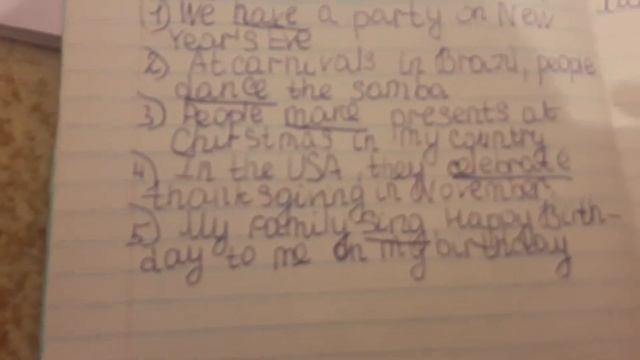 1) We have a party on New
Year's Eve
2) At carnivals in Brazil, people
dance the samba
3) People make presents at
Christmas in my country
4) In the USA, they celebrate
thanksgiving in November
5) My family sing Happy Birth-
day to me on my birthday